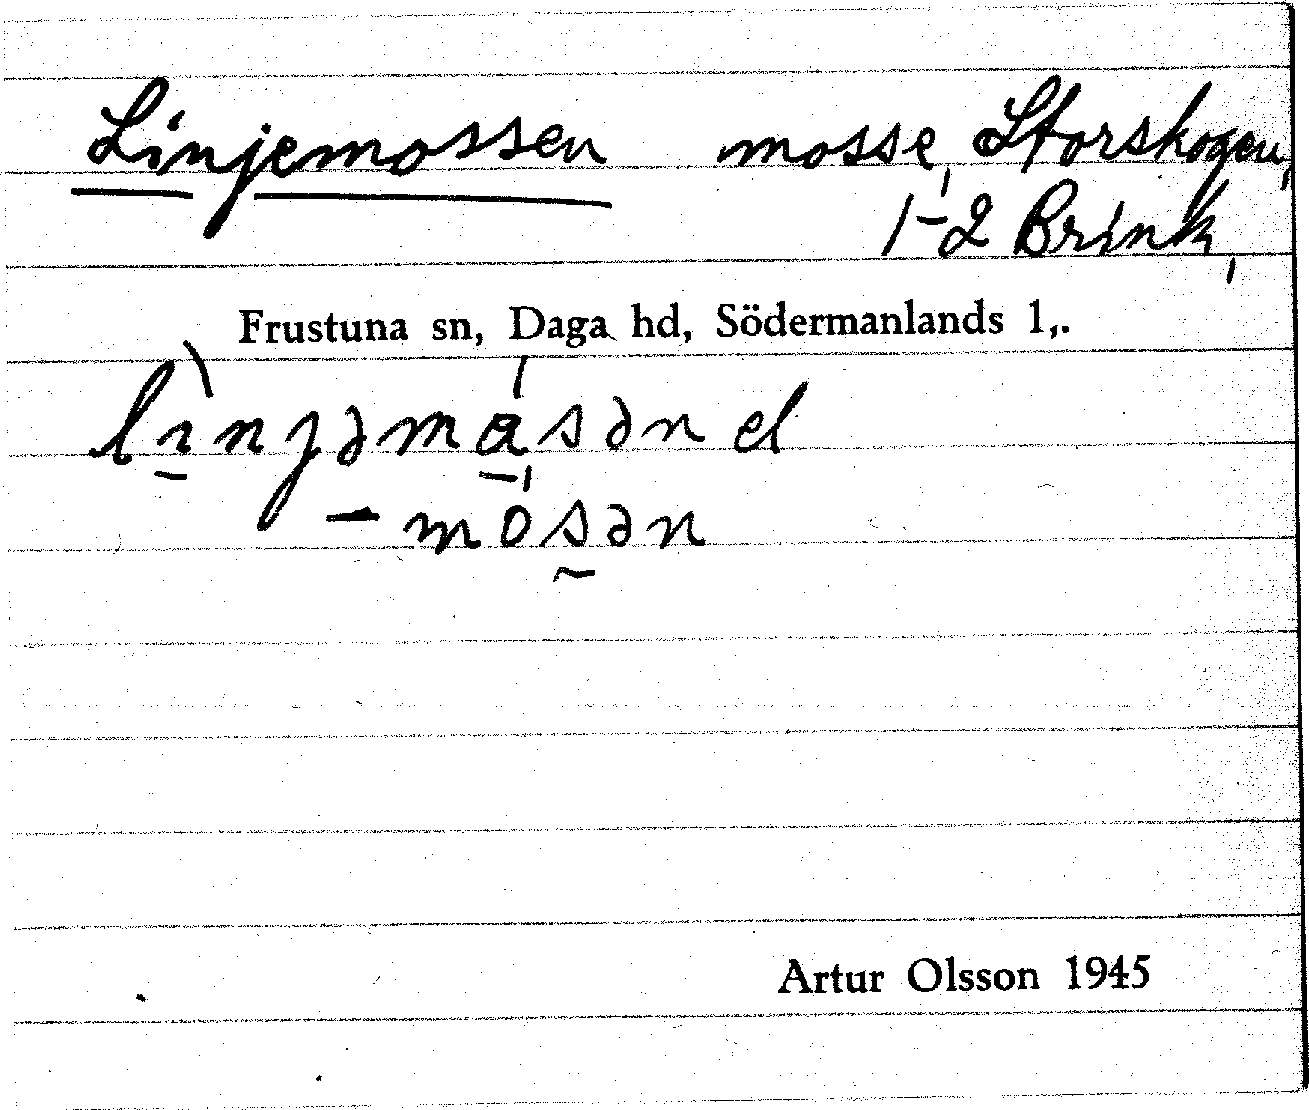 Linjemossen mosse, Storskogen,
1-2 Brink,
Frustuna sn, Daga hd, Södermanlands l,.
lìnjəmásən el
- mósən
Artur Olsson 1945